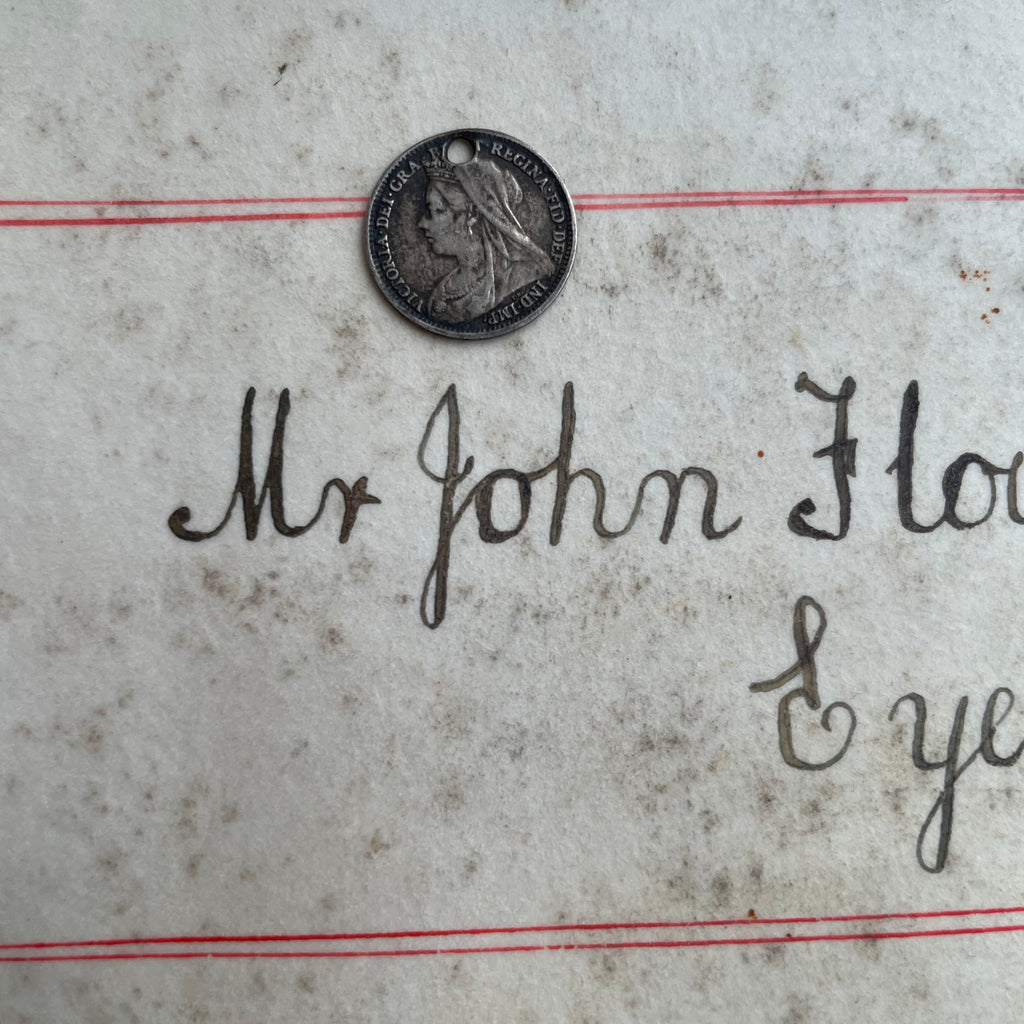 VICTORIA·DEI·GRA· REGINA·FID·DEF· IND·IMP·
Mr John Flo
Eye